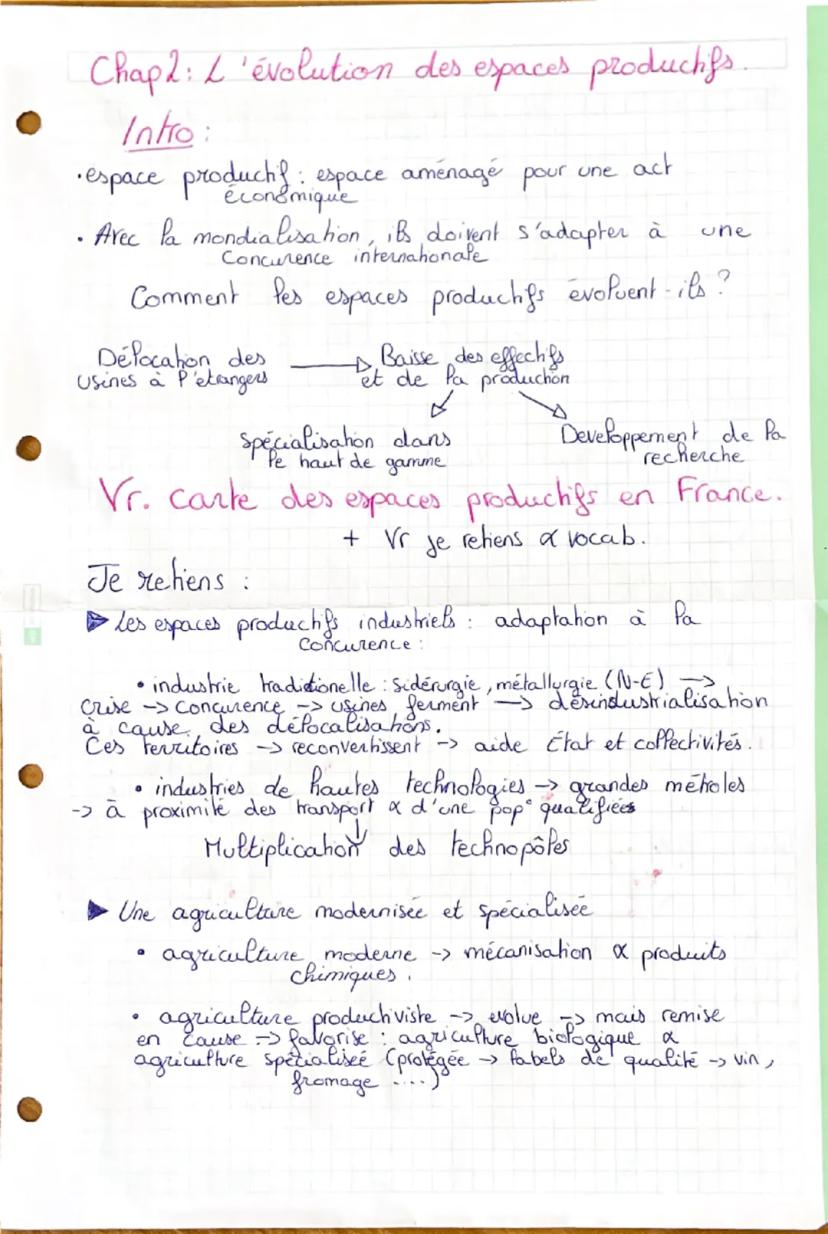 Chap2: L'évolution des espaces productifs.
Intro :
• espace productif : espace aménagé pour une act
économique
• Avec la mondialisation, ils doivent s'adapter à une
concurence internationale
Comment les espaces productifs évoluent-ils ?
Délocation des
usines à l'étrangers
→ Baisse des effectifs
et de la production
Spécialisation dans
le haut de gamme
Developpement de la
recherche
Vr. carte des espaces productifs en France.
+ Vr je retiens & vocab.
Je retiens :
▶ Les espaces productifs industriels : adaptation à la
concurence :
• industrie traditionelle : sidérurgie, métallurgie (N-E) →
crise → concurence → usines ferment → désindustrialisation
à cause des délocalisations.
Ces territoires → reconvertissent → aide État et collectivités.
• industries de hautes technologies → grandes métroles
→ à proximité des transport & d'une pop° qualifiées
↓
Multiplication des technopôles
▶ Une agriculture modernisée et spécialisée
• agriculture moderne → mécanisation & produits
chimiques.
• agriculture productiviste → evolue → mais remise
en cause → favorise : agriculture biologique &
agriculture spécialisée (protégée → labels de qualité → vin,
fromage ....)